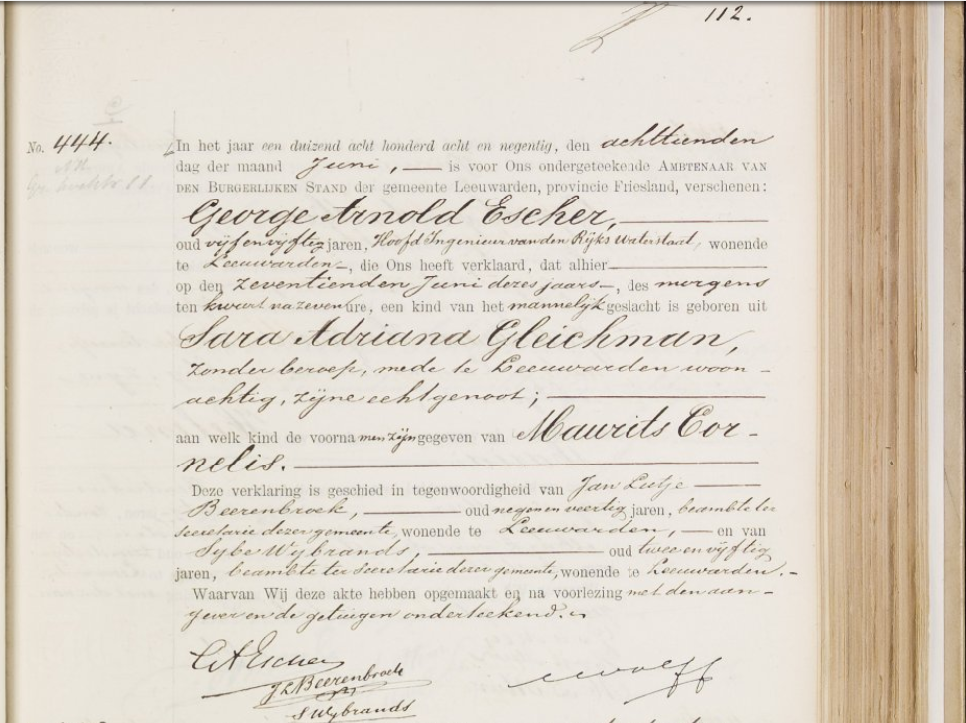 112.
No. 444.
In het jaar een duizend acht honderd acht en negentig, den achttienden
dag der maand Juni, — is voor Ons ondergeteekende AMBTENAAR VAN
DEN BURGERLIJKEN STAND der gemeente Leeuwarden, provincie Friesland, verschenen:
George Arnold Escher,
oud vijf en vijftig jaren, Hoofd Ingenieur van den Rijks Waterstaat, wonende
te Leeuwarden —, die Ons heeft verklaard, dat alhier
op den zeventienden Juni dezes jaars —, des morgens
ten kwart na zeven ure, een kind van het mannelijk geslacht is geboren uit
Sara Adriana Gleichman,
zonder beroep, mede te Leeuwarden woon-
achtig, zijne echtgenoot;
aan welk kind de voornamen zijn gegeven van Maurits Cor-
nelis.
Deze verklaring is geschied in tegenwoordigheid van Jan Lutje
Beerenbroek, — oud negen en veertig jaren, beambte ter
secretarie dezer gemeente, wonende te Leeuwarden, — en van
Sybe Wybrands, — oud twee en vijftig
jaren, beambte ter secretarie dezer gemeente, wonende te Leeuwarden. —
Waarvan Wij deze akte hebben opgemaakt en na voorlezing met den aan-
gever en de getuigen onderteekend.
GA Escher
J L Beerenbroek
S Wybrands